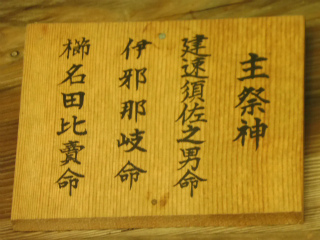 主祭神
建速須佐之男命
伊邪那岐命
櫛名田比賣命